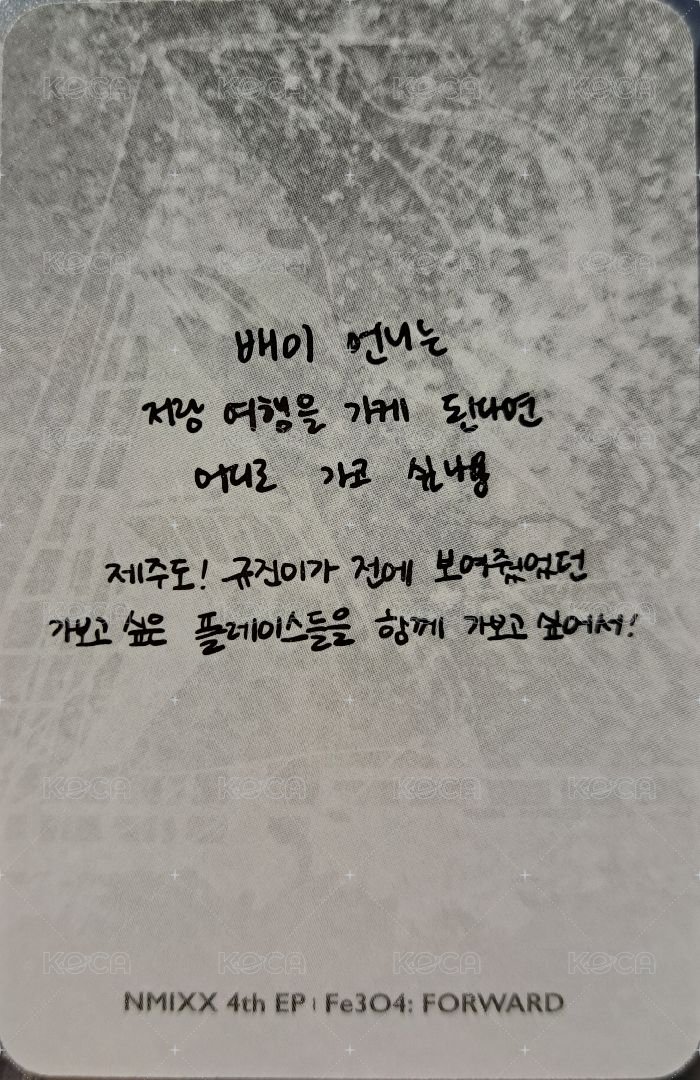 배이 언니는
저랑 여행을 가게 된다면
어디로 가고 싶나용
제주도! 규진이가 전에 보여줬었던
가보고 싶은 플레이스들을 함께 가보고 싶어서!
NMIXX 4th EP | Fe3O4: FORWARD
KOCA